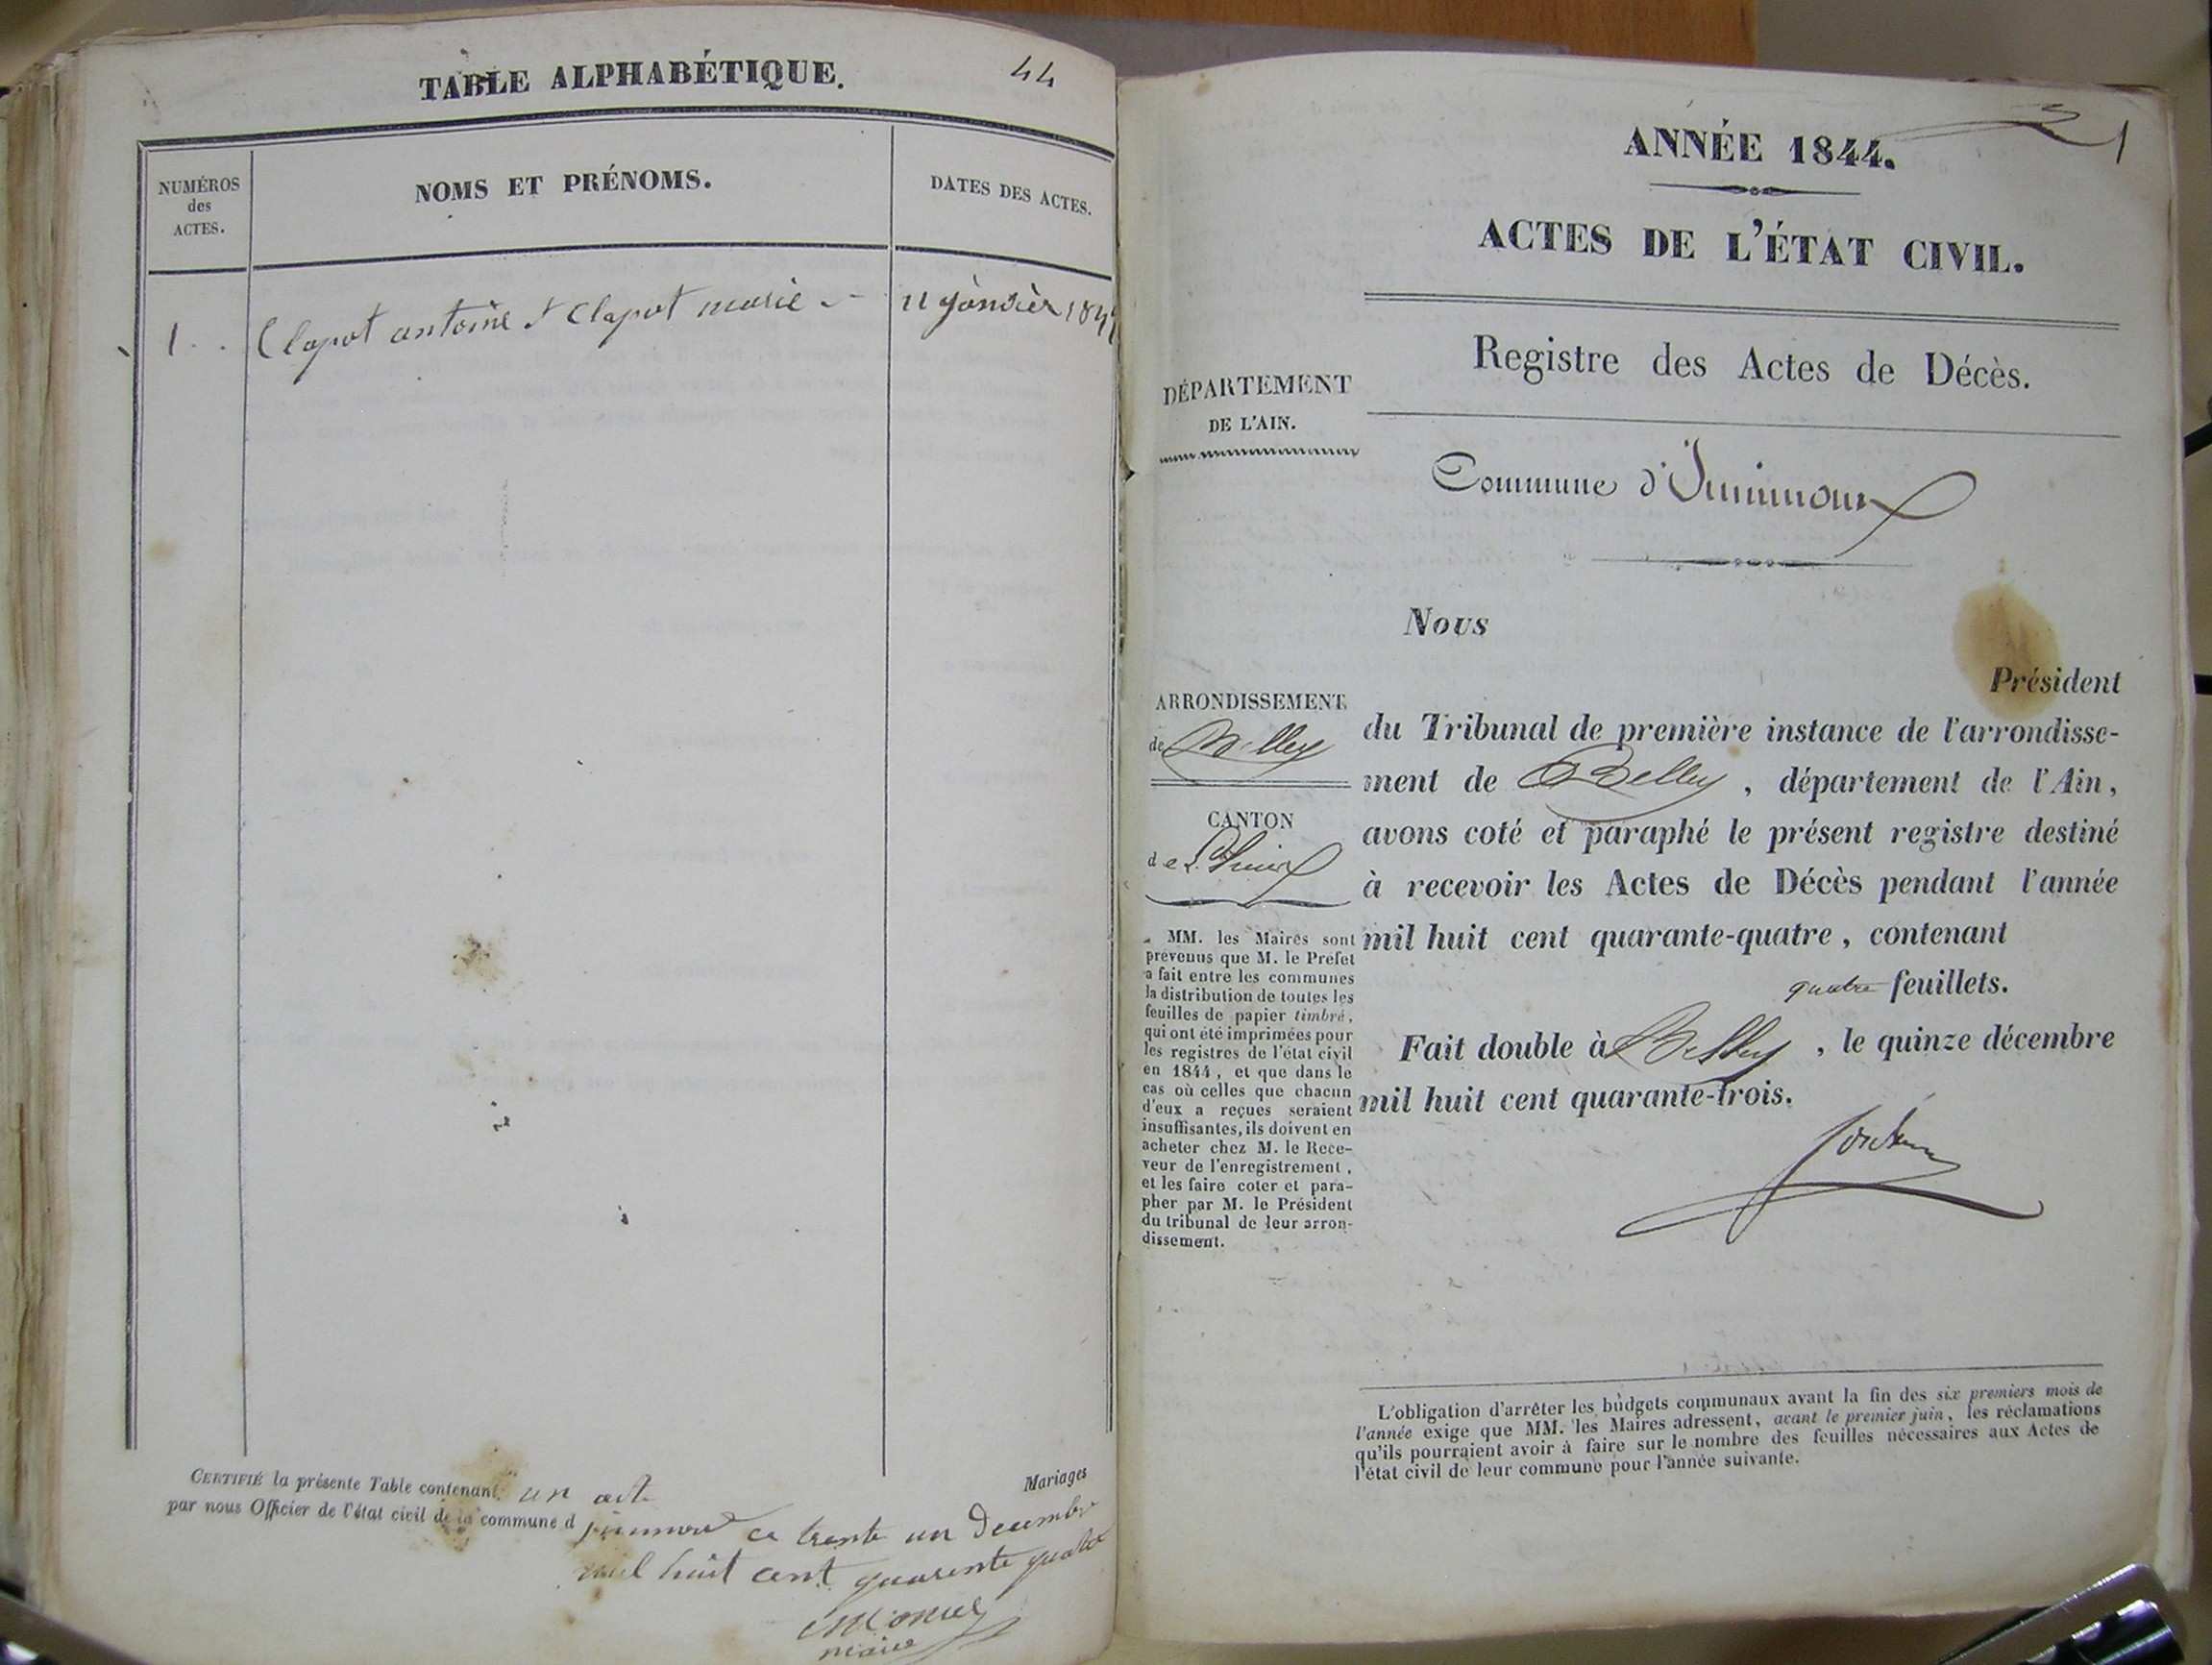 TABLE ALPHABÉTIQUE. 44
NUMÉROS
des
ACTES.
NOMS ET PRÉNOMS.
DATES DES ACTES.
1 . . Clapot antoine & Clapot marie 11 janvier 1844
CERTIFIÉ la présente Table contenant un acte Mariages
par nous Officier de l'état civil de la commune d ce trente un decembre
mil huit cent quarente quatre
maire
1
ANNÉE 1844.
ACTES DE L'ÉTAT CIVIL.
Registre des Actes de Décès.
DÉPARTEMENT
DE L'AIN.
Commune d'Innimont
Nous
Président
ARRONDISSEMENT
de Belley
du Tribunal de première instance de l'arrondisse-
ment de Belley, département de l'Ain,
CANTON
de
avons coté et paraphé le présent registre destiné
à recevoir les Actes de Décès pendant l'année
mil huit cent quarante-quatre, contenant
quatre feuillets.
Fait double à Belley, le quinze décembre
mil huit cent quarante-trois.
MM. les Maires sont
prévenus que M. le Prefet
a fait entre les communes
la distribution de toutes les
feuilles de papier timbré,
qui ont été imprimées pour
les registres de l'état civil
en 1844, et que dans le
cas où celles que chacun
d'eux a reçues seraient
insuffisantes, ils doivent en
acheter chez M. le Rece-
veur de l'enregistrement,
et les faire coter et para-
pher par M. le Président
du tribunal de leur arron-
dissement.
L'obligation d'arrêter les budgets communaux avant la fin des six premiers mois de
l'année exige que MM. les Maires adressent, avant le premier juin, les réclamations
qu'ils pourraient avoir à faire sur le nombre des feuilles nécessaires aux Actes de
l'état civil de leur commune pour l'année suivante.